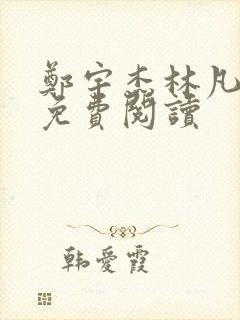 鄭宇杰林凡
免費閱讀
韩愛霞